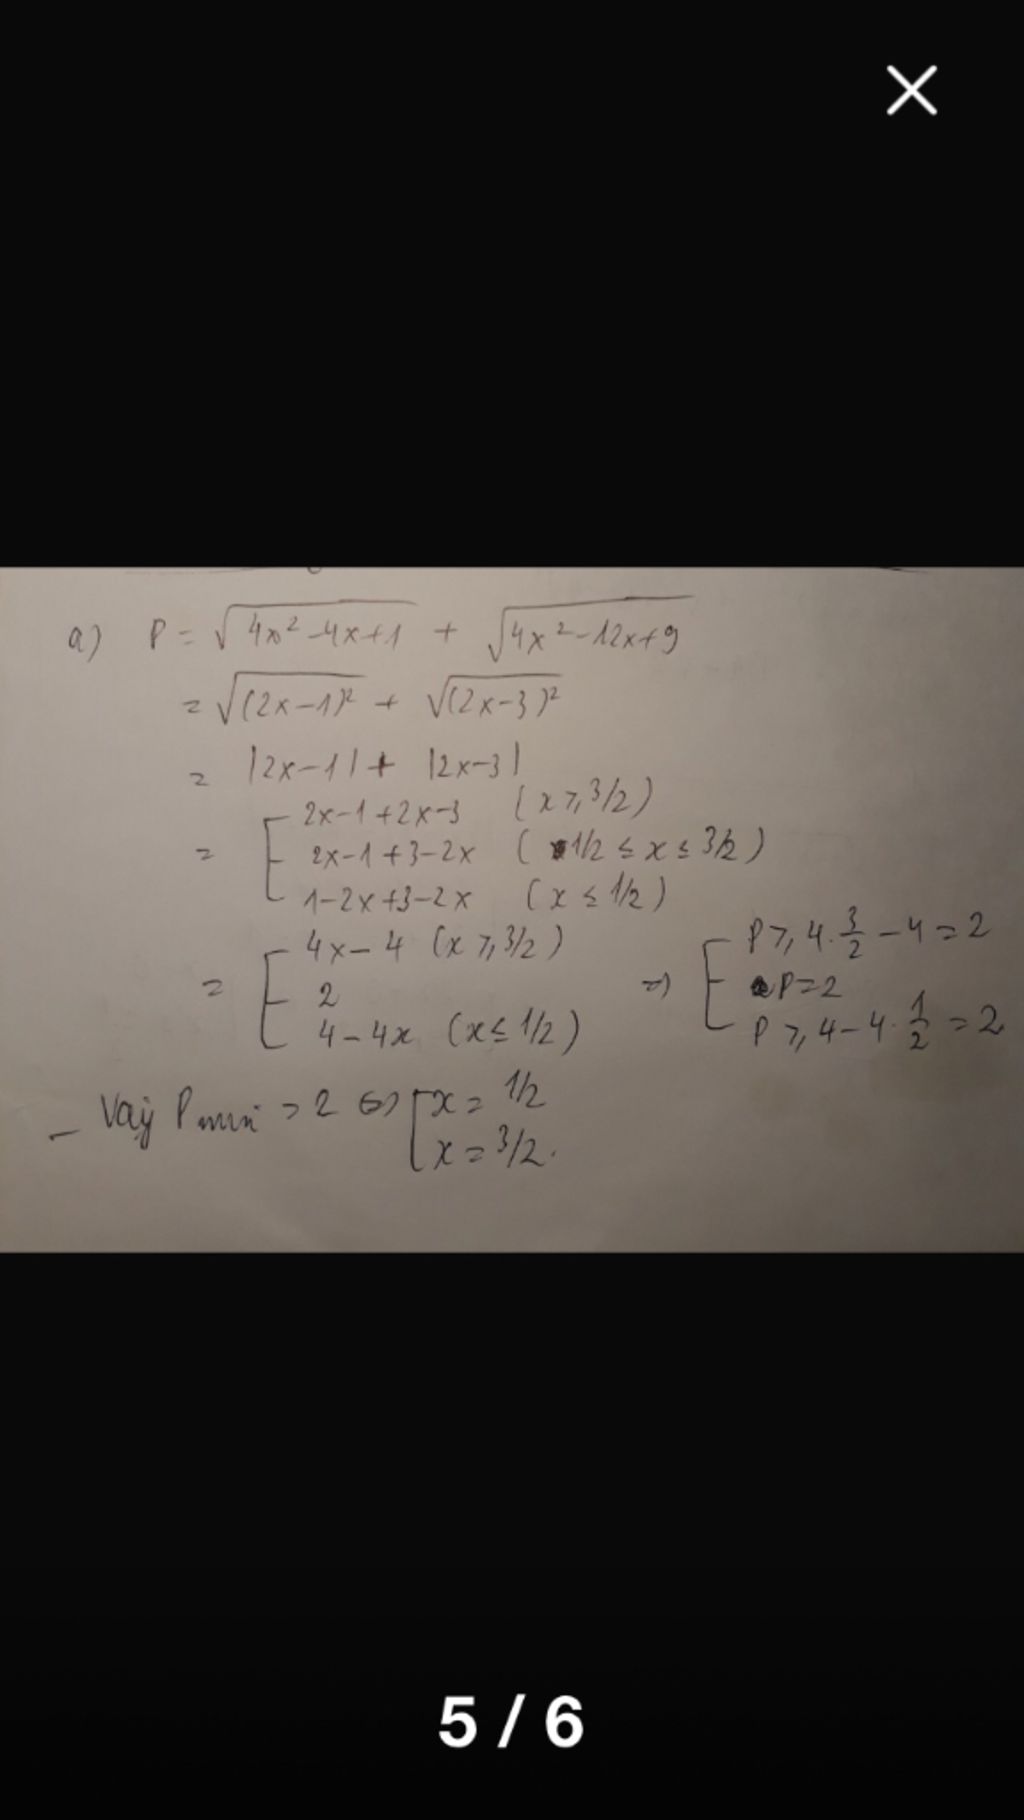 a) P = √(4x² - 4x + 1) + √(4x² - 12x + 9)
= √((2x - 1)²) + √((2x - 3)²)
= |2x - 1| + |2x - 3|
= [ 2x - 1 + 2x - 3 (x ≥ 3/2)
2x - 1 + 3 - 2x (1/2 ≤ x ≤ 3/2)
1 - 2x + 3 - 2x (x ≤ 1/2)
= [ 4x - 4 (x ≥ 3/2) => [ P ≥ 4.3/2 - 4 = 2
2 P = 2
4 - 4x (x ≤ 1/2) P ≥ 4 - 4.1/2 = 2
- Vậy Pmin = 2 <=> [ x = 1/2
x = 3/2.
5 / 6